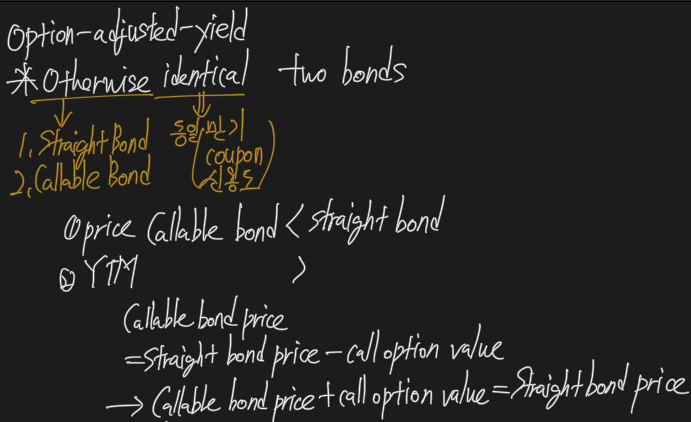 Option-adjusted-yield
* Otherwise identical two bonds
1. Straight Bond
2. Callable Bond
동일, 만기
coupon
신용도
① price Callable bond < straight bond
② YTM >
Callable bond price
= Straight bond price - call option value
→ Callable bond price + call option value = Straight bond price